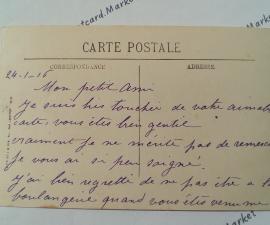 CARTE POSTALE
CORRESPONDANCE
ADRESSE
24-1-16
Mon petit Ami
Je suis très touchée de votre aimable
carte, vous êtes bien gentil
vraiment je ne mérite pas de remerci
je vous ai si peu soigné.
J'ai bien regretté de ne pas être a la
boulangerie quand vous êtes venu me